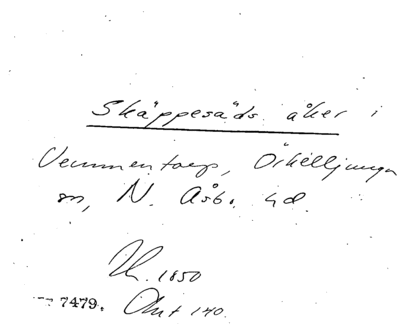 Skäppesäds åker i
Vemmentorp, Örkelljunga
sn, N. Åsb. hd.
1850
7479. 140.